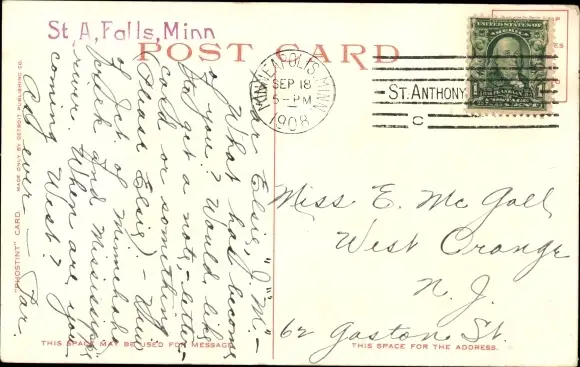 St A, Falls, Minn
POST CARD
MINNEAPOLIS, MINN.
SEP 18
5-PM
1908
ST. ANTHONY
C
UNITED STATES OF AMERICA
Dear Elsie, "J.M." –
What has become
of you? Would like
to get a note, letter,
card or something
(Please Elsie) – This
pick of Minnehaha
park and Mississippi
river. When are you
coming West?
As ever –
Miss E. McGall
West Orange
N. J.
62 Gaston St.
"PHOSTINT" CARD
MADE ONLY BY DETROIT PUBLISHING CO.
THIS SPACE MAY BE USED FOR MESSAGE.
THIS SPACE FOR THE ADDRESS.